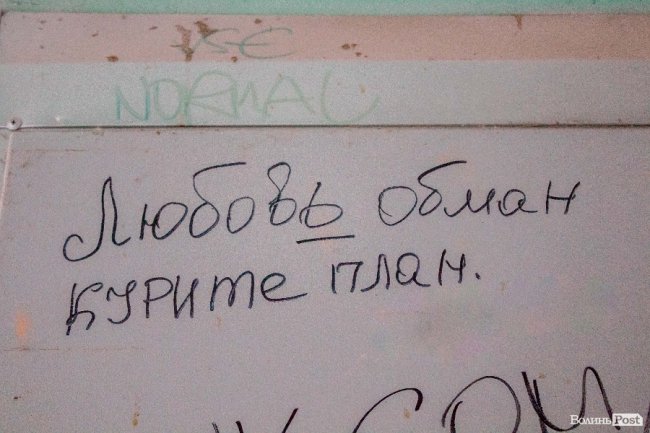 VSE
NORMAL
Любовь обман
курите план.
ВолиньPost